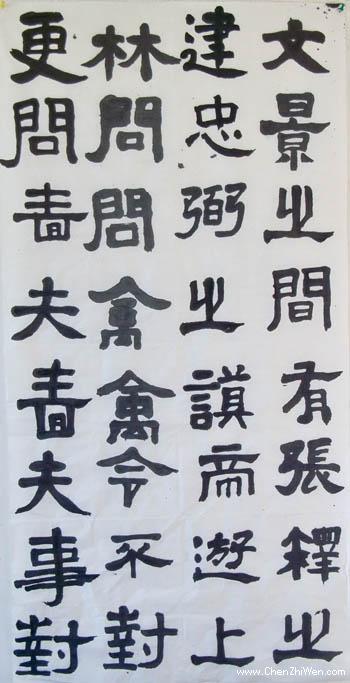 文景之間有張釋之
建忠弼之謨帝遊上
林問問禽禽令不對
更問嗇夫嗇夫事對
www.ChenZhiWen.com